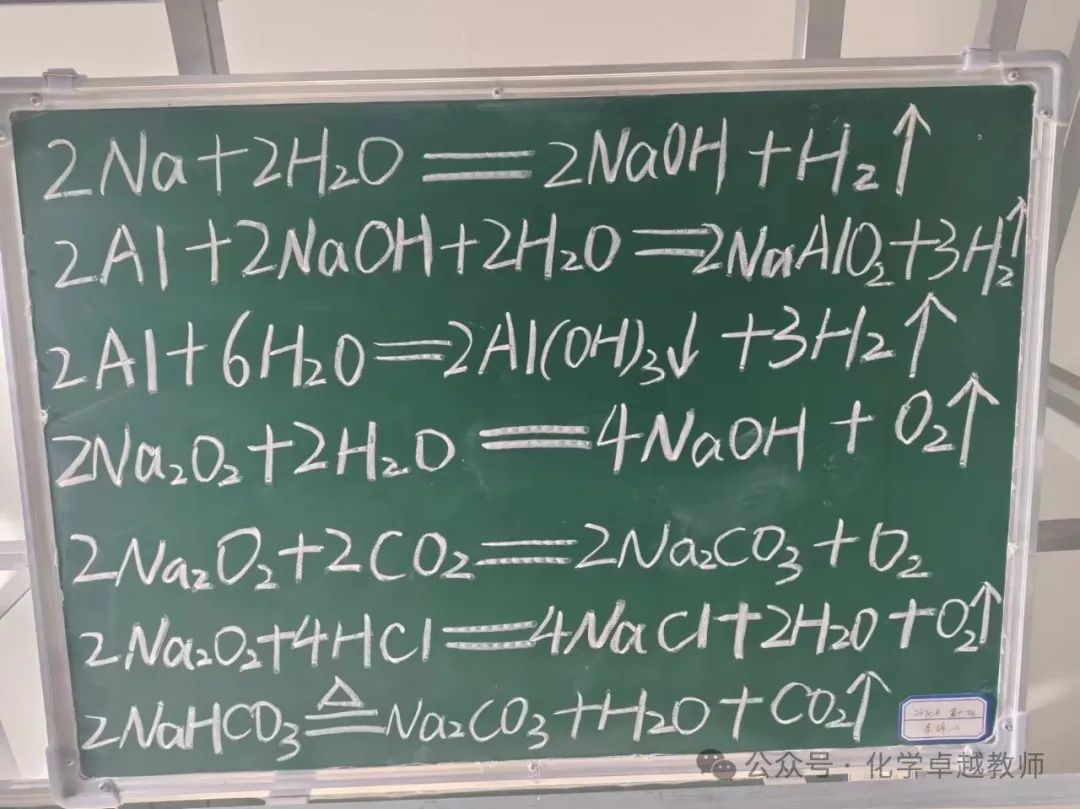 2Na+2H₂O══2NaOH+H₂↑
2Al+2NaOH+2H₂O══2NaAlO₂+3H₂↑
2Al+6H₂O══2Al(OH)₃↓+3H₂↑
2Na₂O₂+2H₂O══4NaOH+O₂↑
2Na₂O₂+2CO₂══2Na₂CO₃+O₂
2Na₂O₂+4HCl══4NaCl+2H₂O+O₂↑
2NaHCO₃≜Na₂CO₃+H₂O+CO₂↑
公众号·化学卓越教师